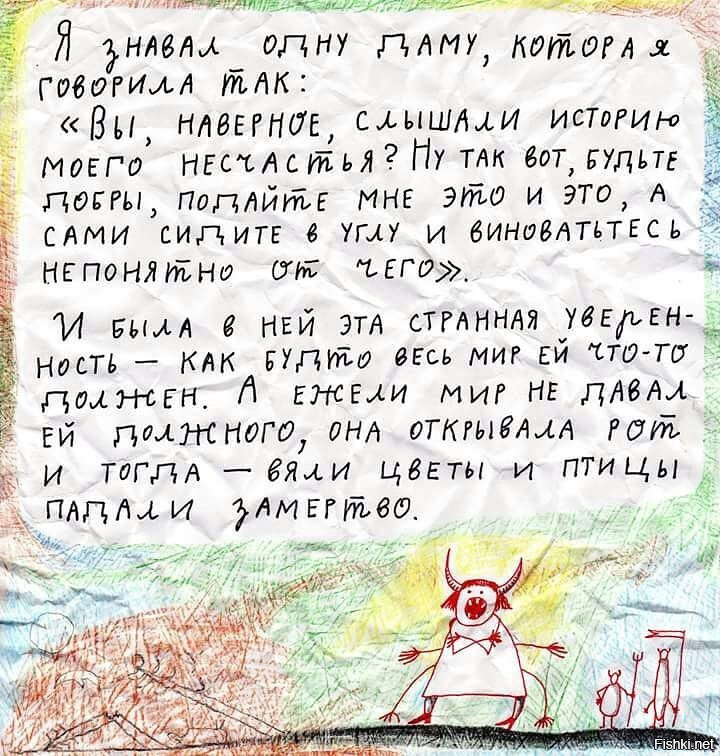 Я знавал одну даму, которая
говорила так:
«Вы, наверное, слышали историю
моего несчастья? Ну так вот, будьте
добры, подайте мне это и это, а
сами сидите в углу и виноватьтесь
непонятно от чего».
И была в ней эта странная уверен-
ность — как будто весь мир ей что-то
должен. А ежели мир не давал
ей должного, она открывала рот
и тогда — вяли цветы и птицы
падали замертво.
Fishki.net